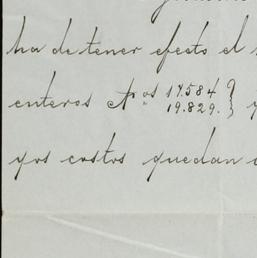 ha de tener efecto el
enteros Nos 17.584
19.829. }
yos costos quedan